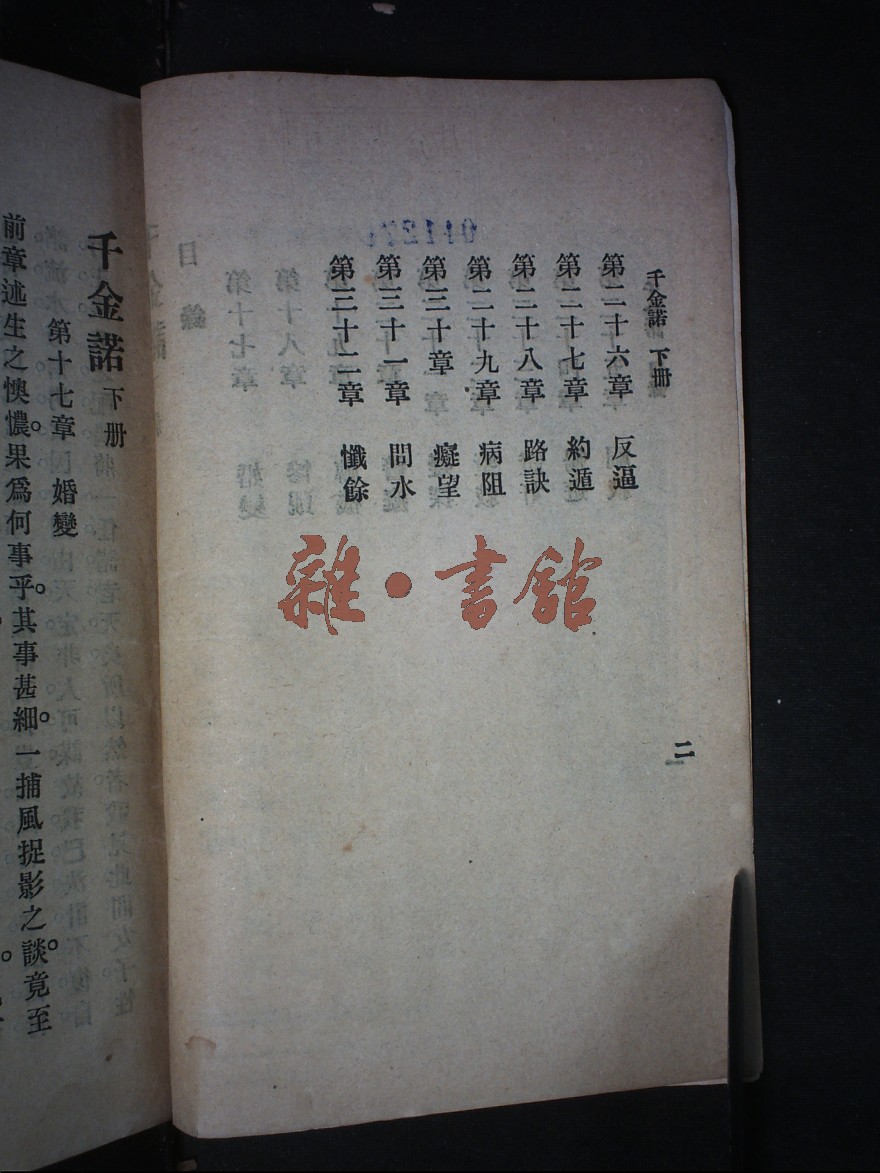 千金諾 下册
第二十六章 反逼
第二十七章 約遁
第二十八章 路訣
第二十九章 病阻
第三十章 癡望
第三十一章 問水
第三十二章 懺餘
二
雜·書館
千金諾 下册
第十七章 婚變
前章述生之懊憹。果爲何事乎。其事甚細。一捕風捉影之談。竟至